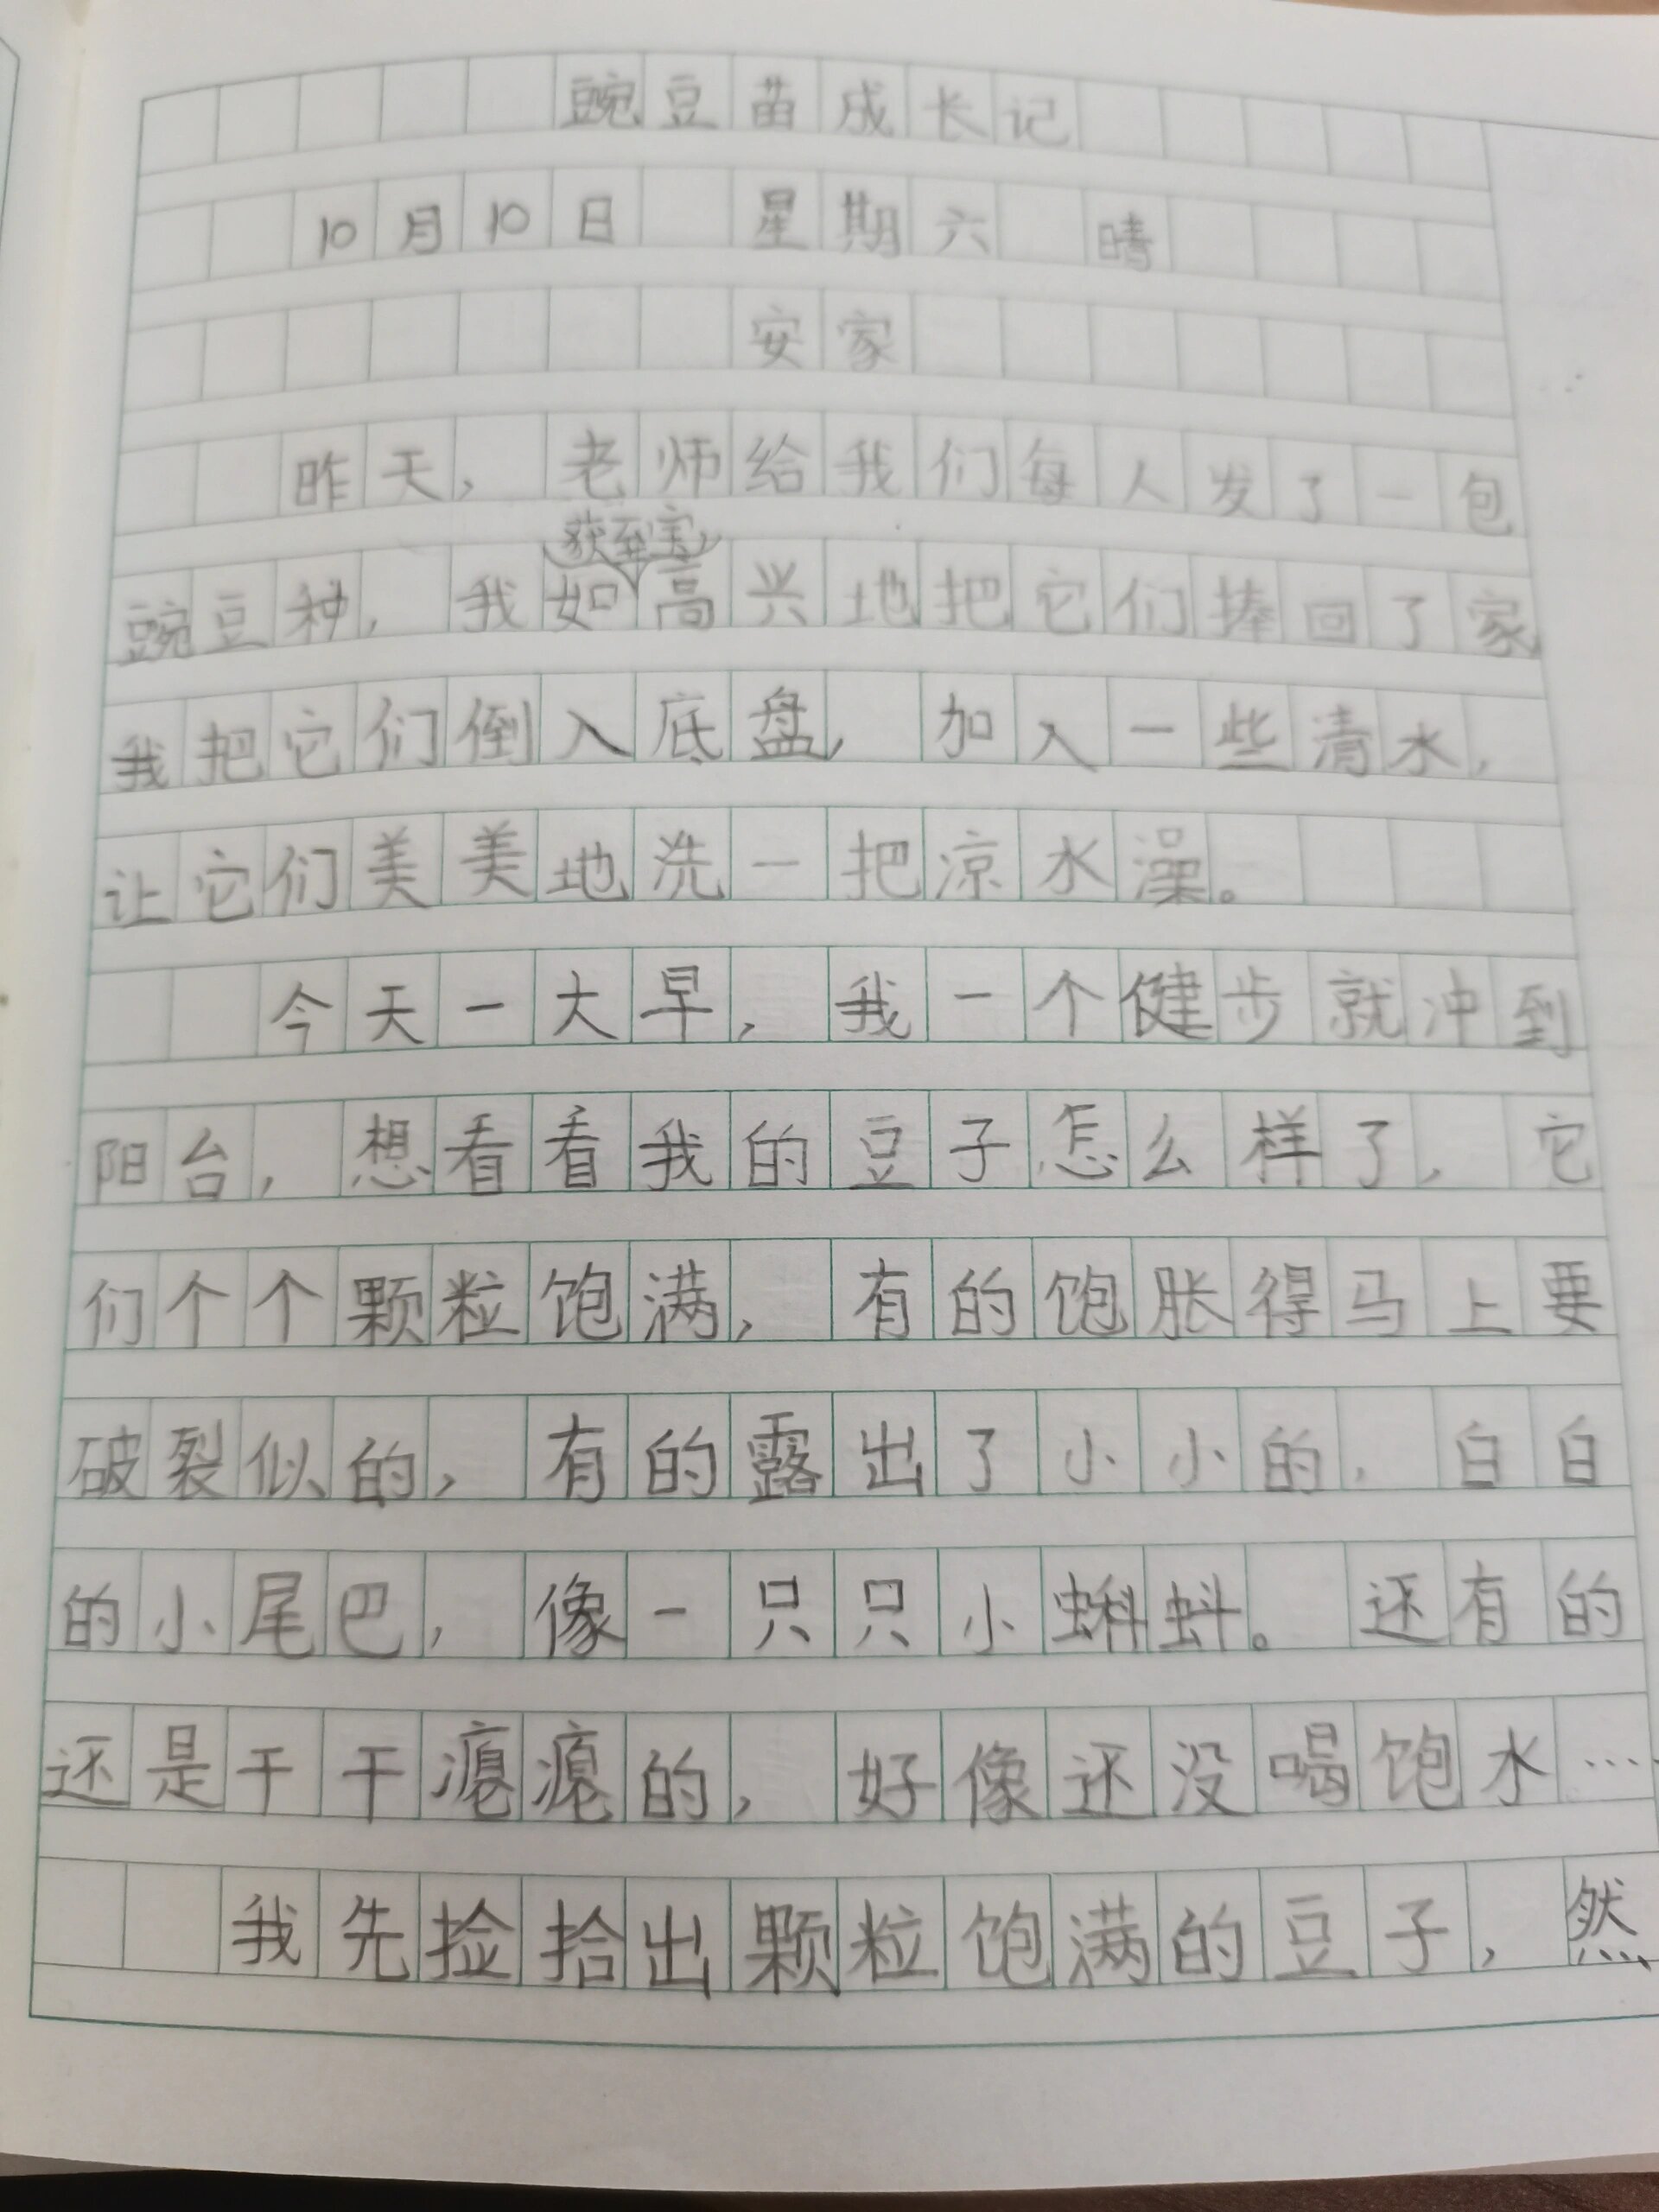 豌豆苗成长记
10月10日 星期六 晴
安家
昨天，老师给我们每人发了一包
豌豆种，我如获至宝高兴地把它们捧回了家
我把它们倒入底盘，加入一些清水，
让它们美美地洗一把凉水澡。
今天一大早，我一个健步就冲到
阳台，想看看我的豆子怎么样了，它
们个个颗粒饱满，有的饱胀得马上要
破裂似的，有的露出了小小的，白白
的小尾巴，像一只只小蝌蚪。还有的
还是干干瘪瘪的，好像还没喝饱水…
我先捡拾出颗粒饱满的豆子，然